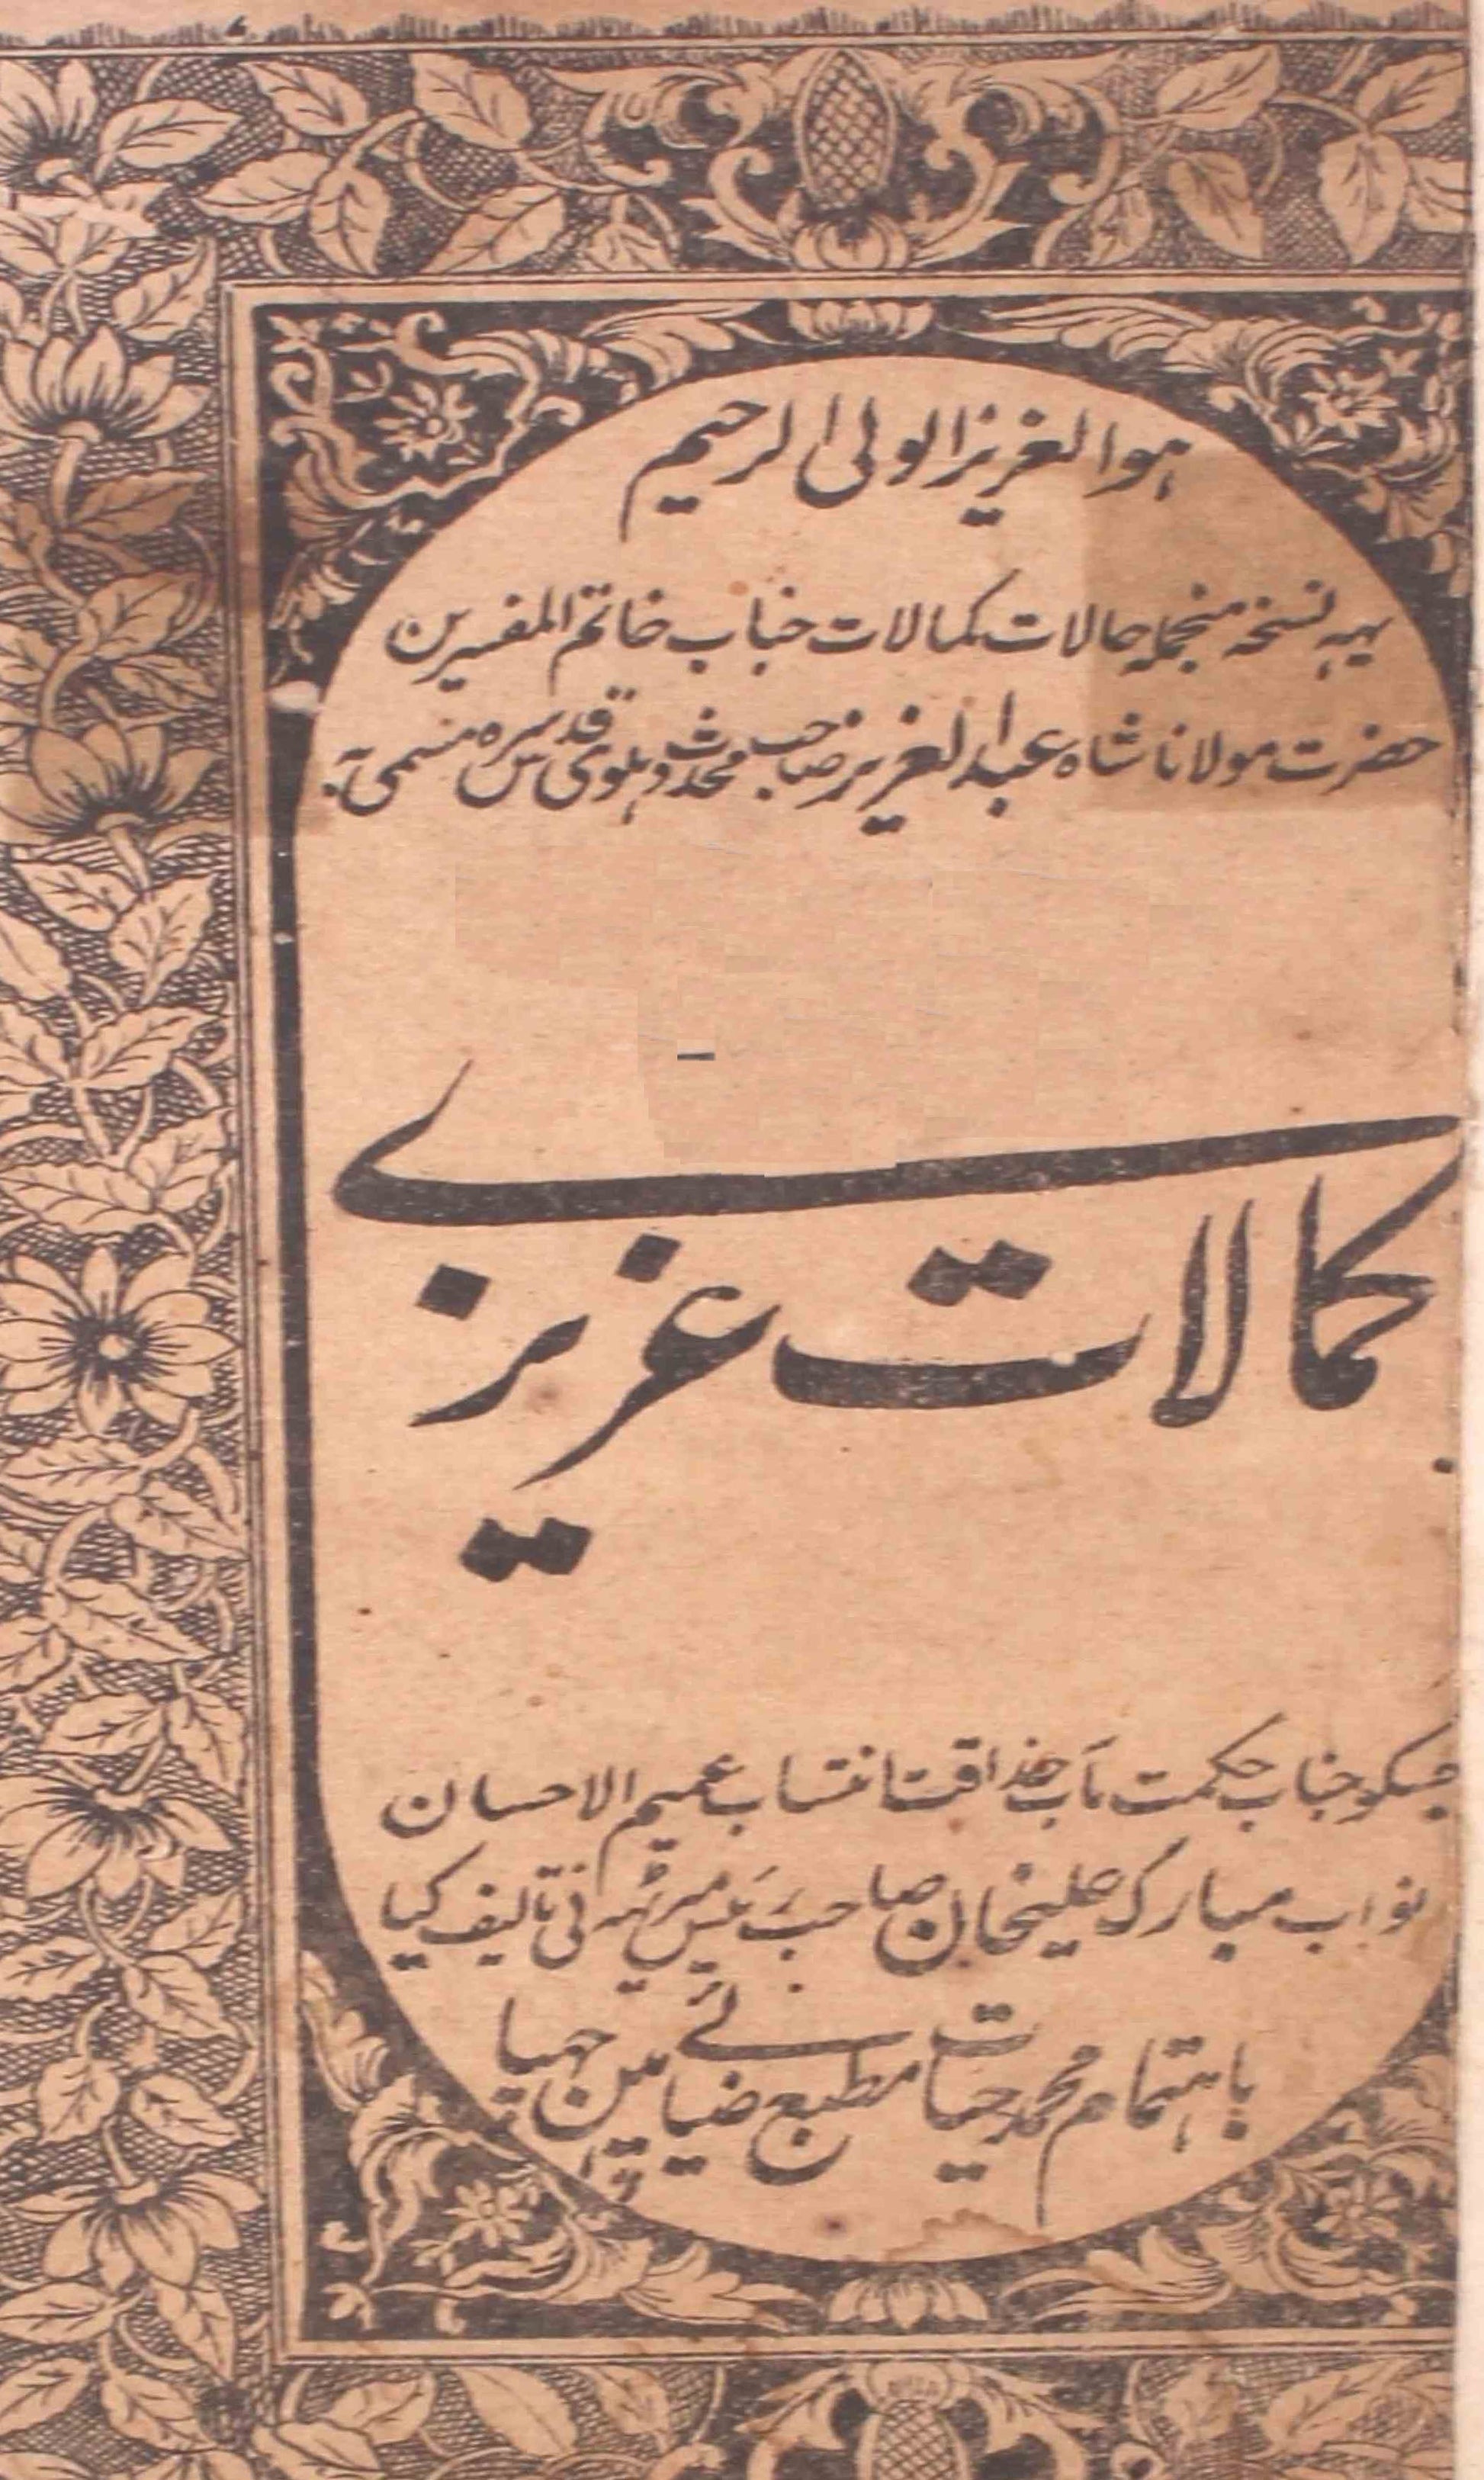 ہوا لعزیز الولی الرحیم
یہہ نسخہ منجملہ حالات کمالات جناب خاتم المفسرین
حضرت مولانا شاہ عبد العزیز صاحب محدث دہلوی قدس سرہ مسمی بہ
کمالات عزیزے
جسکو جناب حکمت مآب حذاقت انتساب عمیم الاحسان
نواب مبارک علیخان صاحب رئیس میرٹہہ نی تالیف کیا
باہتمام محمد حیات مطبع ضیائے مین چہپا